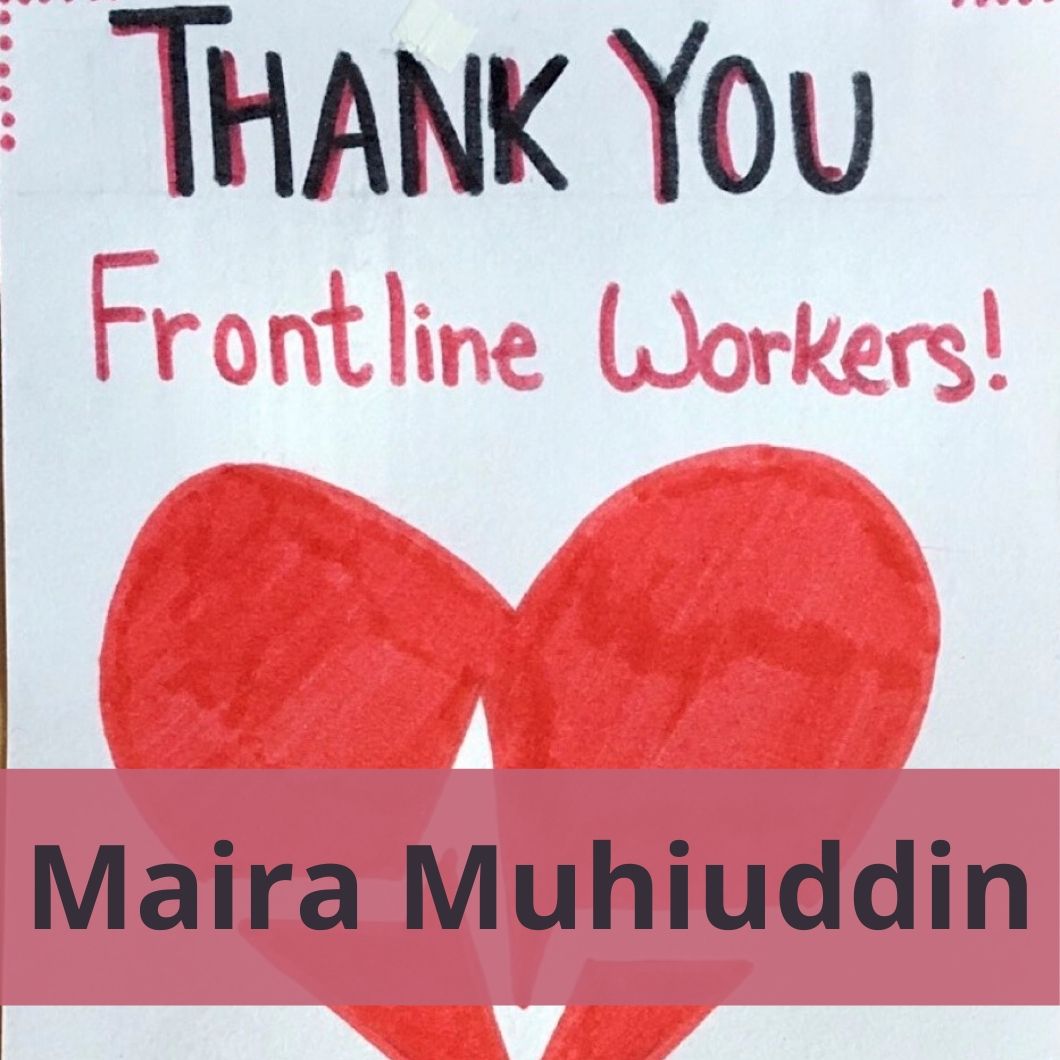 THANK YOU
Frontline Workers!
Maira Muhiuddin